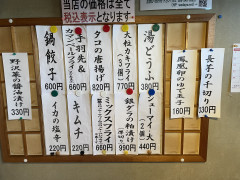 当店の価格は全て
税込表示となります。
長芋の千切り
330円
鳳凰卵のゆで玉子
160円
湯どうふ
380円
シューマイ
440円
大粒カキフライ
(3個)
770円
銀ダラの粕漬け
990円
タコの唐揚げ
820円
ミックスフライ
660円
手羽先&
カマンベールフライ
660円
キムチ
220円
鍋餃子
600円
イカの塩辛
220円
野沢菜の醤油漬け
330円